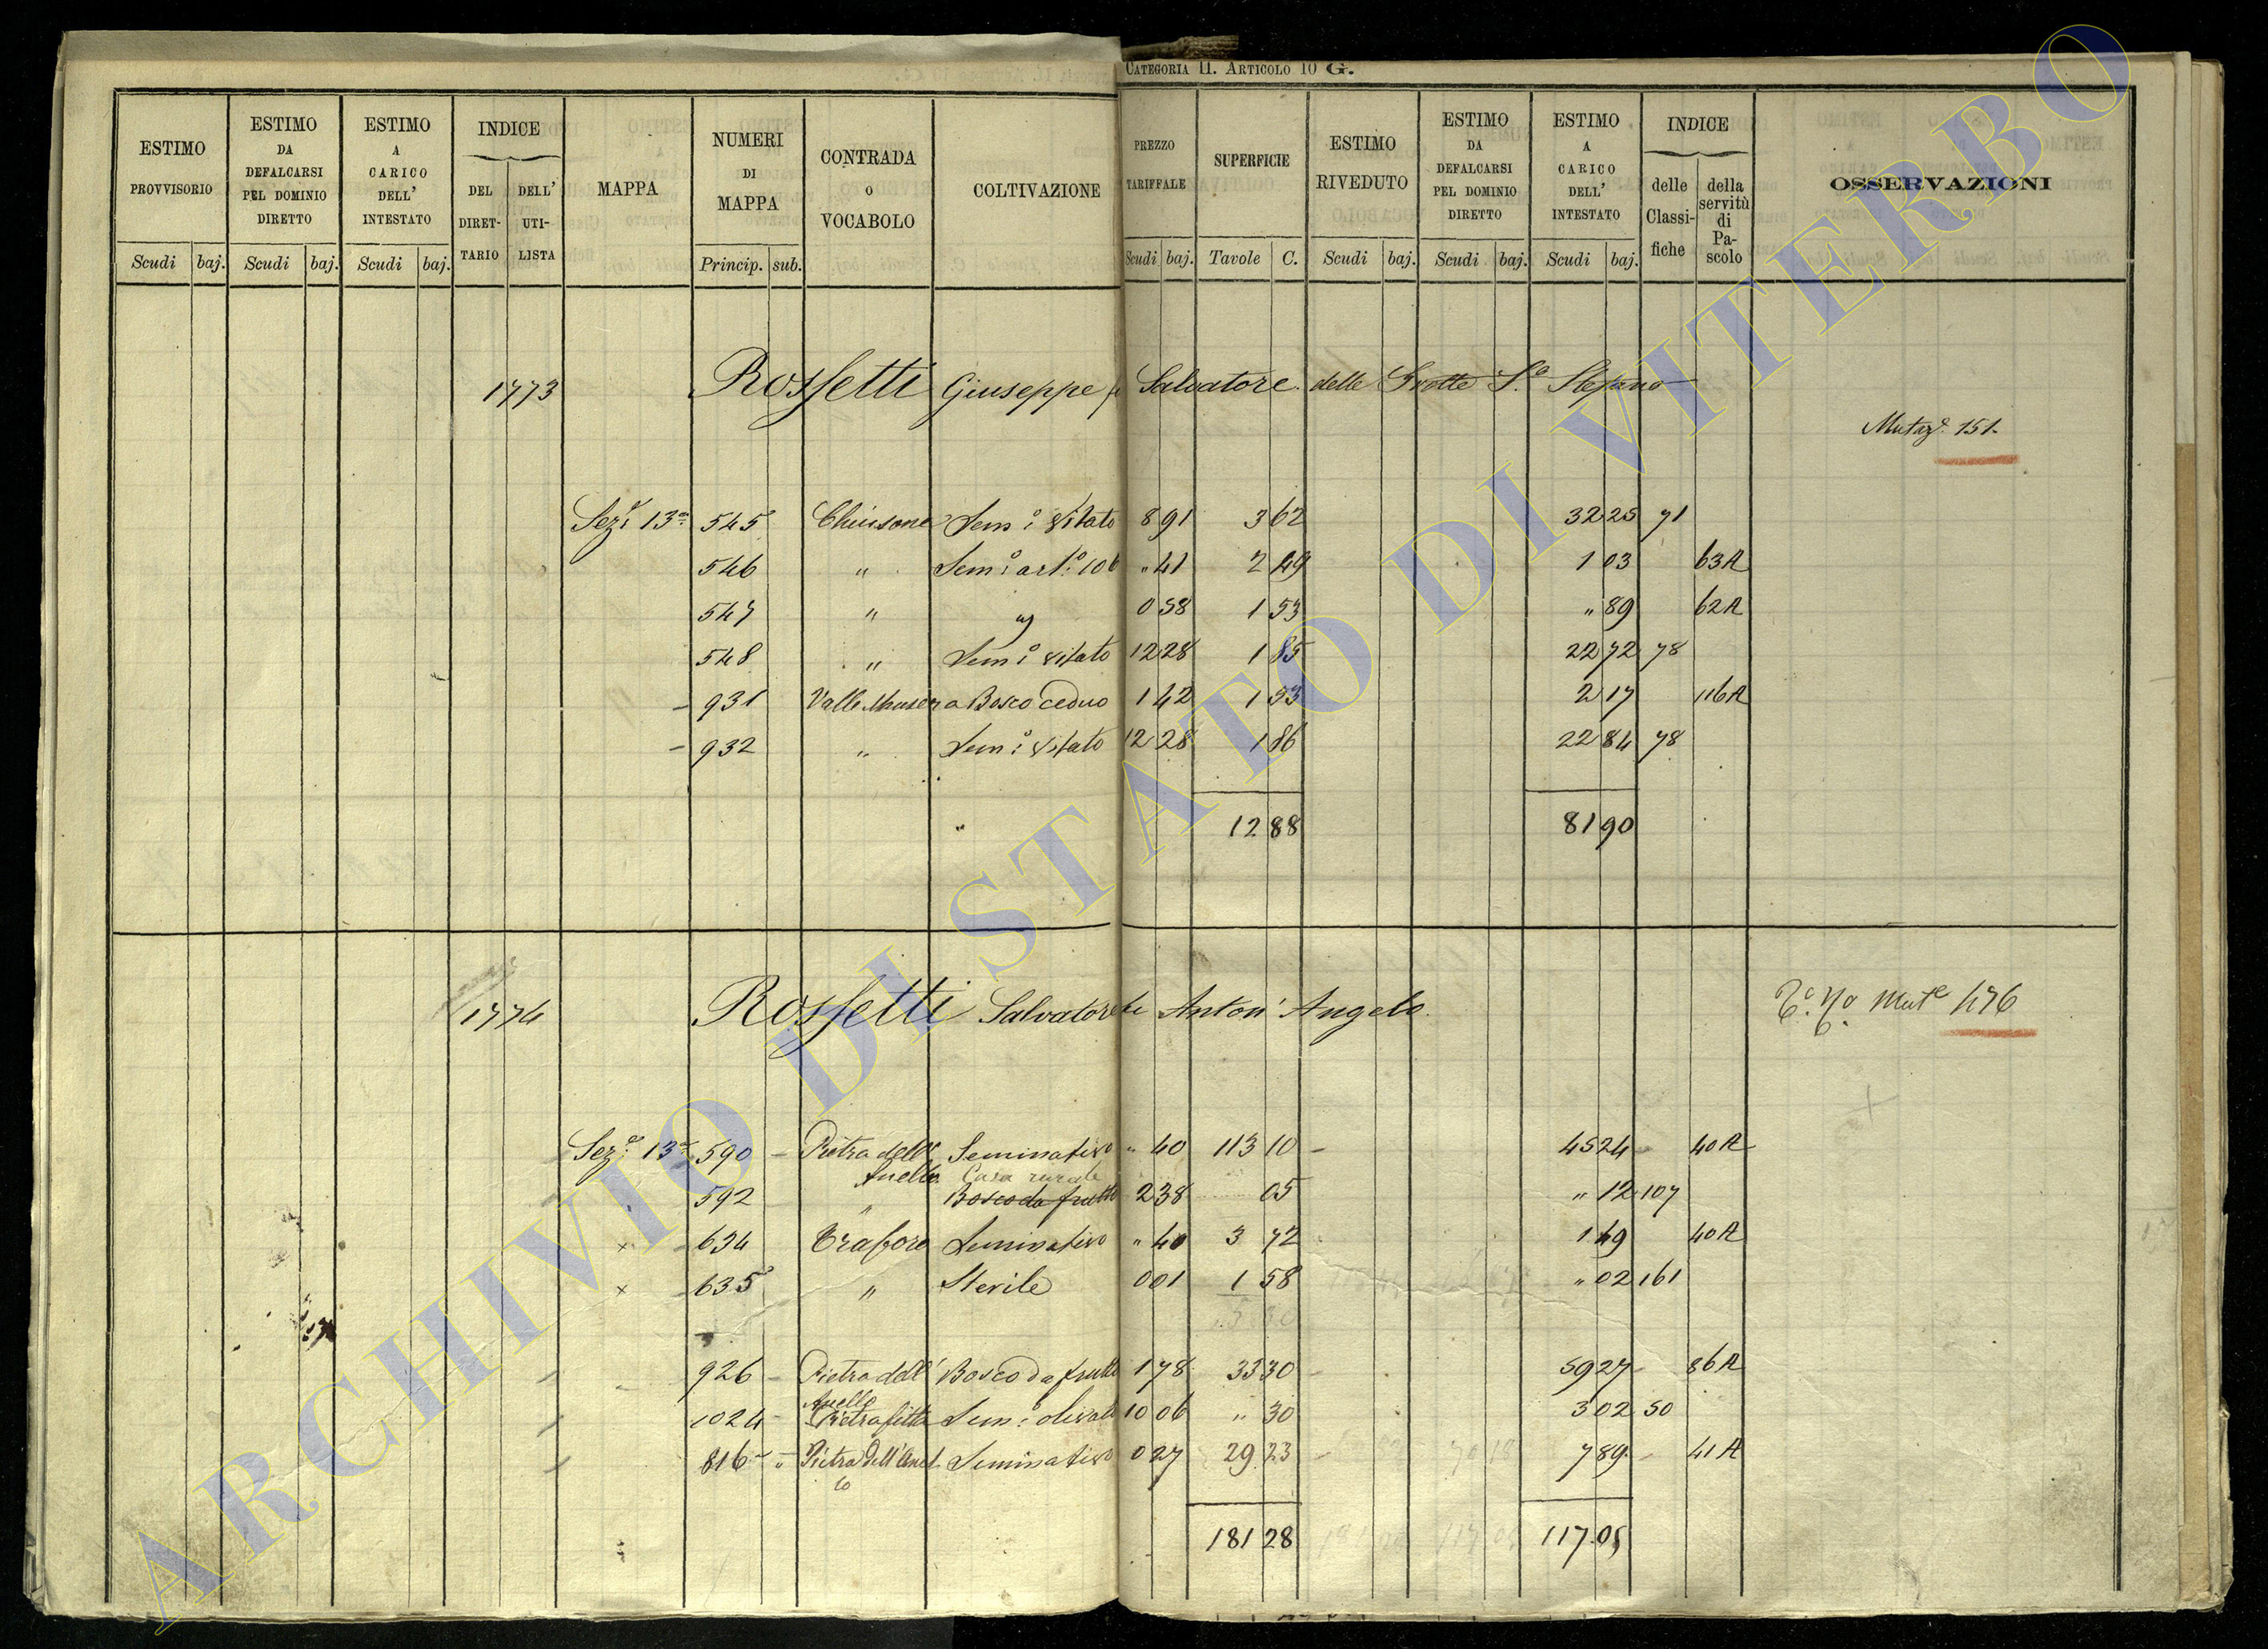 CATEGORIA II. ARTICOLO 10 G.
ESTIMO PROVVISORIO | ESTIMO DA DEFALCARSI PEL DOMINIO DIRETTO | ESTIMO A CARICO DELL' INTESTATO | INDICE DEL DIRET-TARIO | DELL' UTI-LISTA | MAPPA | NUMERI DI MAPPA | CONTRADA O VOCABOLO | COLTIVAZIONE | PREZZO TARIFFALE | SUPERFICIE | ESTIMO RIVEDUTO | ESTIMO DA DEFALCARSI PEL DOMINIO DIRETTO | ESTIMO A CARICO DELL' INTESTATO | INDICE delle Classi-fiche | della servitù di Pa-scolo | OSSERVAZIONI
Scudi baj. Scudi baj. Scudi baj. Princip. sub. Scudi baj. Tavole C. Scudi baj. Scudi baj. Scudi baj.
1773 Rossetti Giuseppe Salvatore delle Grotte S.o Stefano
Mutaz.e 151.
Sez.e 13a 545 Chiusone Sem.o Vitato 8 91 3 62 32 25 71
546 " Sem.o art.o 106 " 41 2 49 1 03 63A
547 " " 0 58 1 53 " 89 62A
548 " Sem.o vitato 12 28 1 85 22 72 78
931 Valle Musera Bosco ceduo 1 42 1 53 2 17 116A
932 " Sem.o Vitato 12 28 1 86 22 84 78
12 88 81 90
1774 Rossetti Salvatore fu Anton' Angelo
Mut.e 476
Sez.e 13a 590 Pietra dell' Anello Seminativo " 40 113 10 45 24 40A
Casa rurale
592 " Bosco da frutto 2 38 05 " 12 107
634 Traforo Seminativo " 40 3 72 1 49 40A
635 " Sterile 0 01 1 58 " 02 161
926 Pietra dell' Anello Bosco da frutto 1 78 33 30 59 27 86A
1024 Pietrafitta Sem.o olivato 10 06 " 30 3 02 50
816 " Pietra dell'Anello Seminativo 0 27 29 23 7 89 41A
181 28 117 05
ARCHIVIO DI STATO DI VITERBO